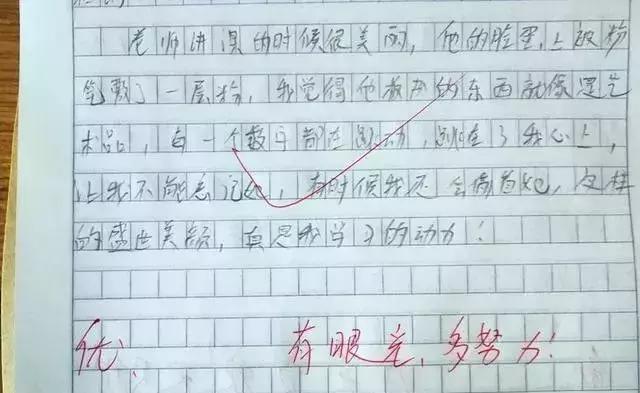 老师讲课的时候很美丽，他的脸蛋上被粉
笔敷了一层粉，我觉得他教出的东西就像是艺
术品，每一个数字都在跳动，跳在了我心上，
让我不能忘记她，有时候我还会偷看她，这样
的盛世美颜，真是我学习的动力！
优！ 有眼光，多努力！